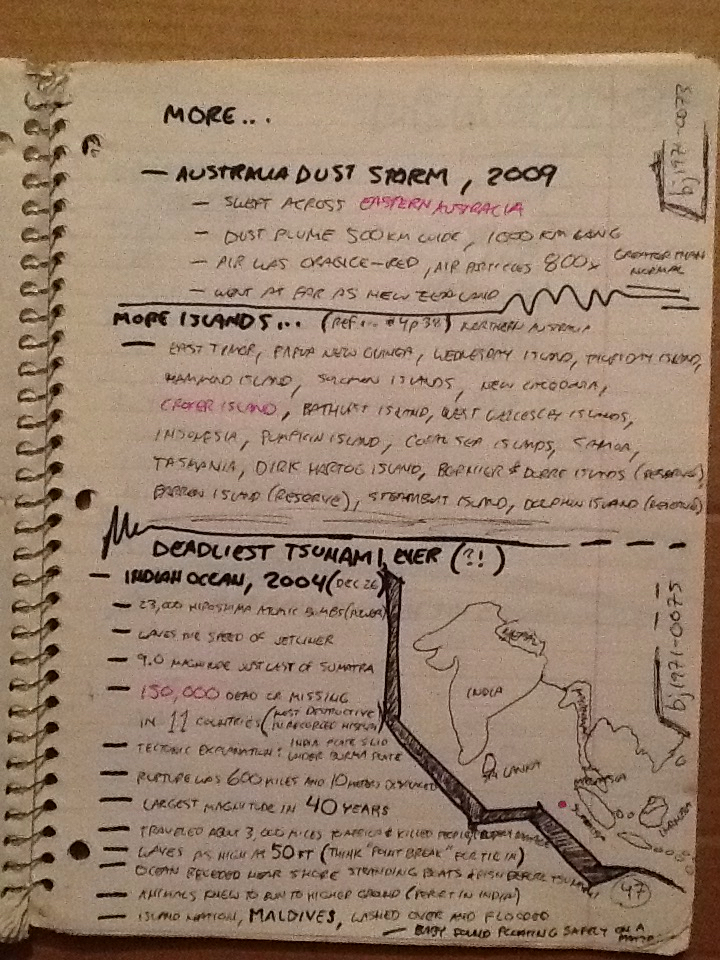 MORE...
bj1971-0073
— AUSTRALIA DUST STORM, 2009
— SWEPT ACROSS EASTERN AUSTRALIA
— DUST PLUME 500 KM WIDE, 1000 KM LONG
— AIR WAS ORANGE-RED, AIR PARTICLES 800x GREATER THAN NORMAL
— WENT AS FAR AS NEW ZEALAND
MORE ISLANDS... (REF... #4 p38) NORTHERN AUSTRALIA
— EAST TIMOR, PAPUA NEW GUINEA, WEDNESDAY ISLAND, THURSDAY ISLAND,
HAMMOND ISLAND, SOLOMON ISLANDS, NEW CALEDONIA,
CROKER ISLAND, BATHURST ISLAND, WEST WELLESLEY ISLANDS,
INDONESIA, PUMPKIN ISLAND, CORAL SEA ISLANDS, SAMOA,
TASMANIA, DIRK HARTOG ISLAND, BERNIER & DORRE ISLANDS (RESERVES)
BARREN ISLAND (RESERVE), STEAMBOAT ISLAND, DOLPHIN ISLAND (RESERVE)
DEADLIEST TSUNAMI, EVER (?!)
— INDIAN OCEAN, 2004 (DEC 26)
— 23,000 HIROSHIMA ATOMIC BOMBS (POWER)
— WAVES THE SPEED OF JETLINER
— 9.0 MAGNITUDE JUST EAST OF SUMATRA
— 150,000 DEAD OR MISSING
IN 11 COUNTRIES (MOST DESTRUCTIVE IN RECORDED HISTORY)
— TECTONIC EXPLANATION: INDIA PLATE SLID UNDER BURMA PLATE
— RUPTURE WAS 600 MILES AND 10 METERS DISPLACED
— LARGEST MAGNITUDE IN 40 YEARS
— TRAVELED ABOUT 3,000 MILES TO AFRICA & KILLED PEOPLE
— WAVES AS HIGH AS 50 FT (THINK "POINT BREAK"
— OCEAN RECEDED NEAR SHORE STRANDING BOATS & FISH BEFORE TSUNAMI
— ANIMALS KNEW TO RUN TO HIGHER GROUND
— ISLAND NATION, MALDIVES, WASHED OVER AND FLOODED
— BABY FOUND FLOATING SAFELY ON A
INDIA
SRI LANKA
MALAYSIA
SUMATRA
bj1971-0075
47